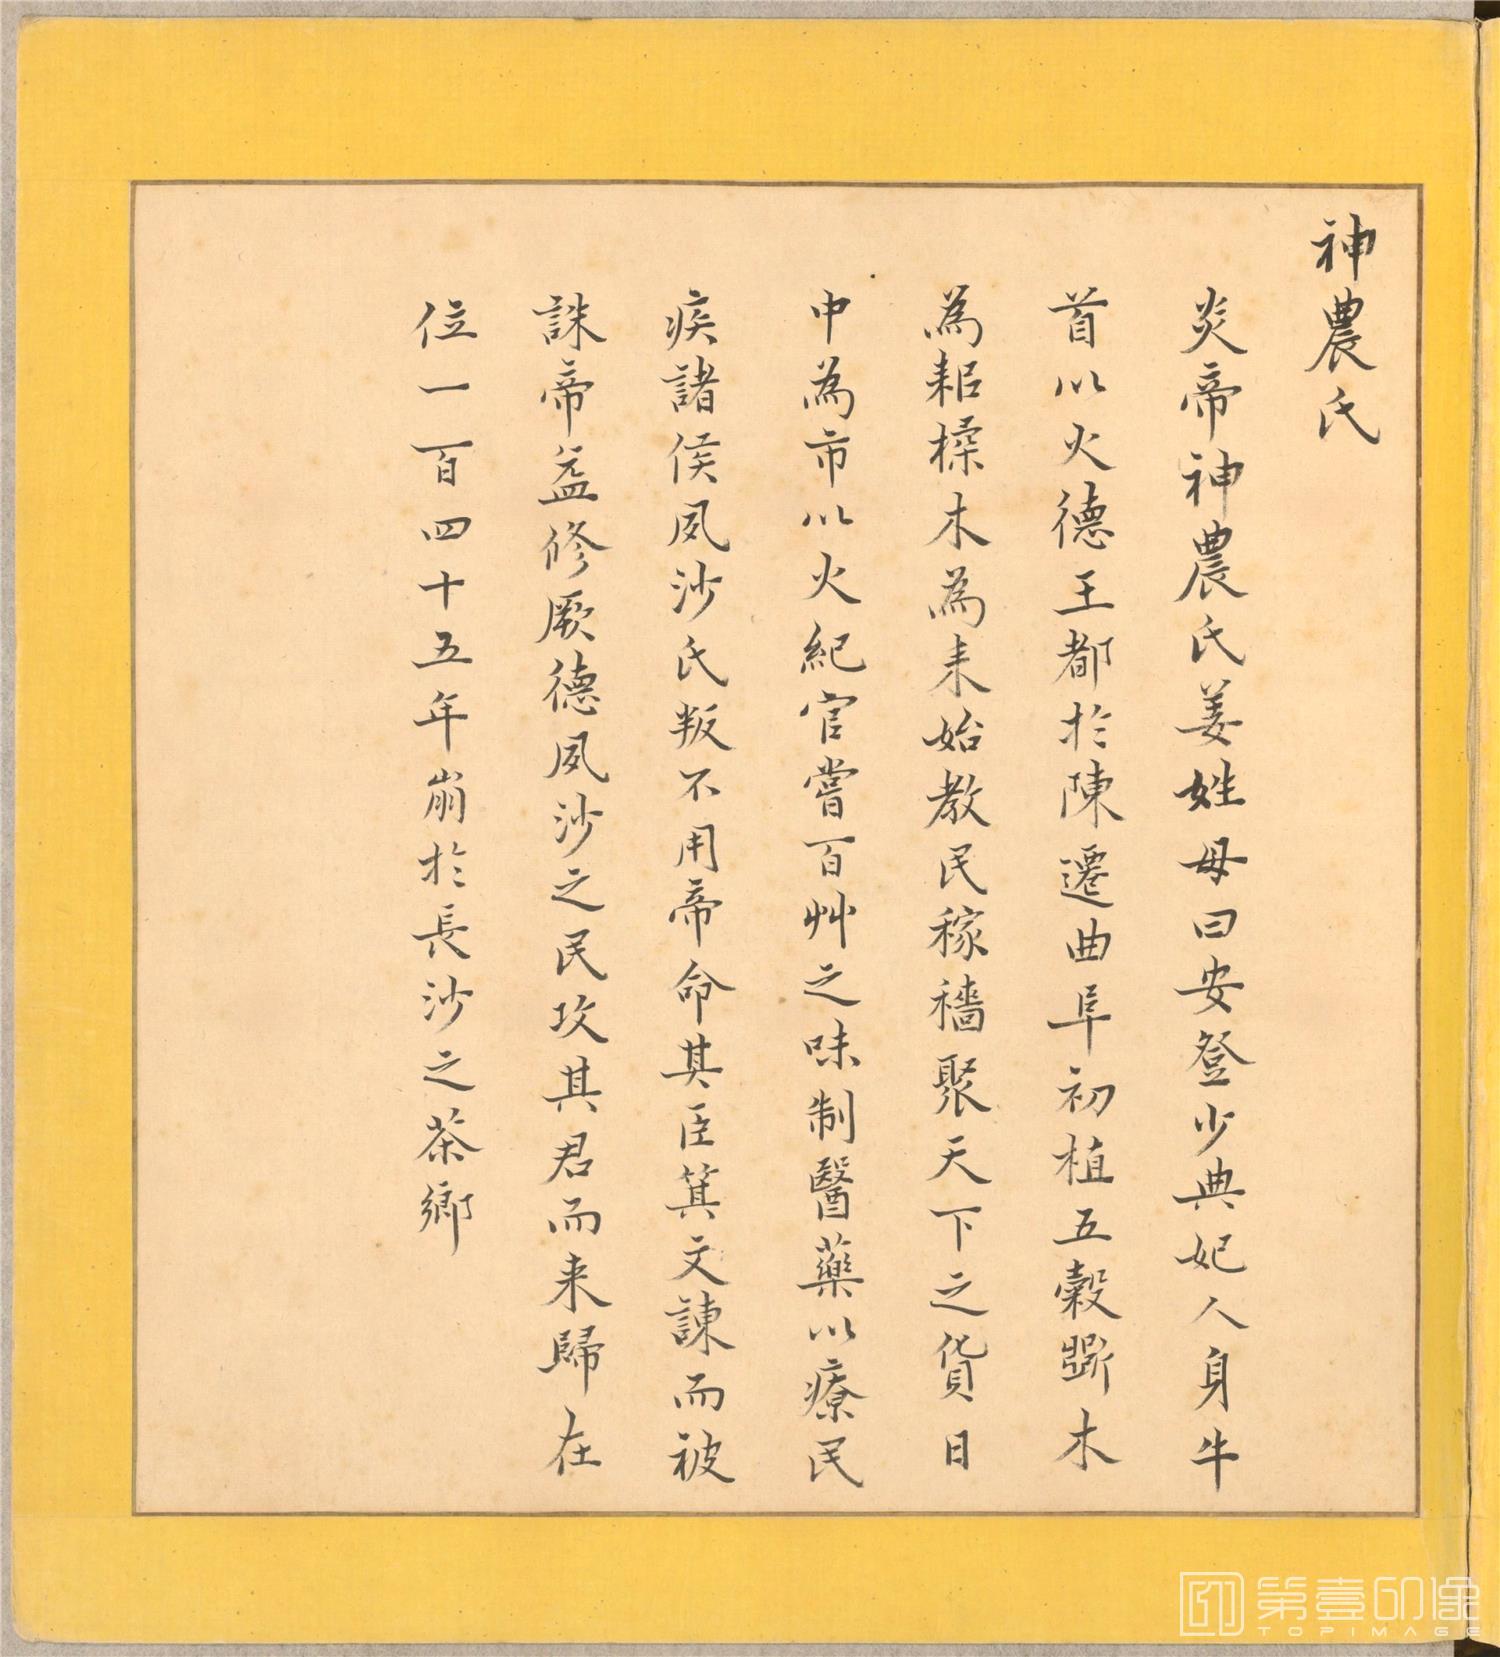 神農氏
炎帝神農氏姜姓母曰安登少典妃人身牛
首以火德王都於陳遷曲阜初植五穀斲木
為耜楺木為耒始教民稼穡聚天下之貨日
中為市以火紀官嘗百艸之味制醫藥以療民
疾諸侯夙沙氏叛不用帝命其臣箕文諫而被
誅帝益修厥德夙沙之民攻其君而来歸在
位一百四十五年崩於長沙之茶鄉
第壹印像
TOPIMAGE